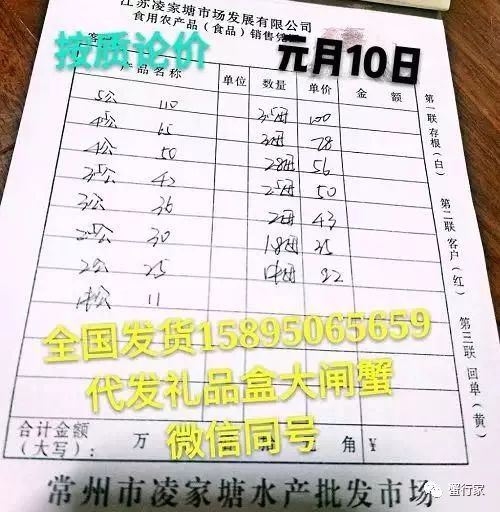 江苏凌家塘市场发展有限公司
食用农产品（食品）销售凭
按质论价
元月10日
客
产品名称 单位 数量 单价 金 额
5公 110 3.5母 100
4.5公 65 3母 78
4公 50 2.8母 56
3.5公 42 2.5母 50
3公 36 2母 43
2.5公 30 1.8母 35
2公 25 中母 22
11
第一联 存根（白）
第二联 客户（红）
第三联 回单（黄）
全国发货15895065659
代发礼品盒大闸蟹
微信同号
合计金额
（大写）： 万 拾 元 角 ¥
常州市凌家塘水产批发市场
蟹行家